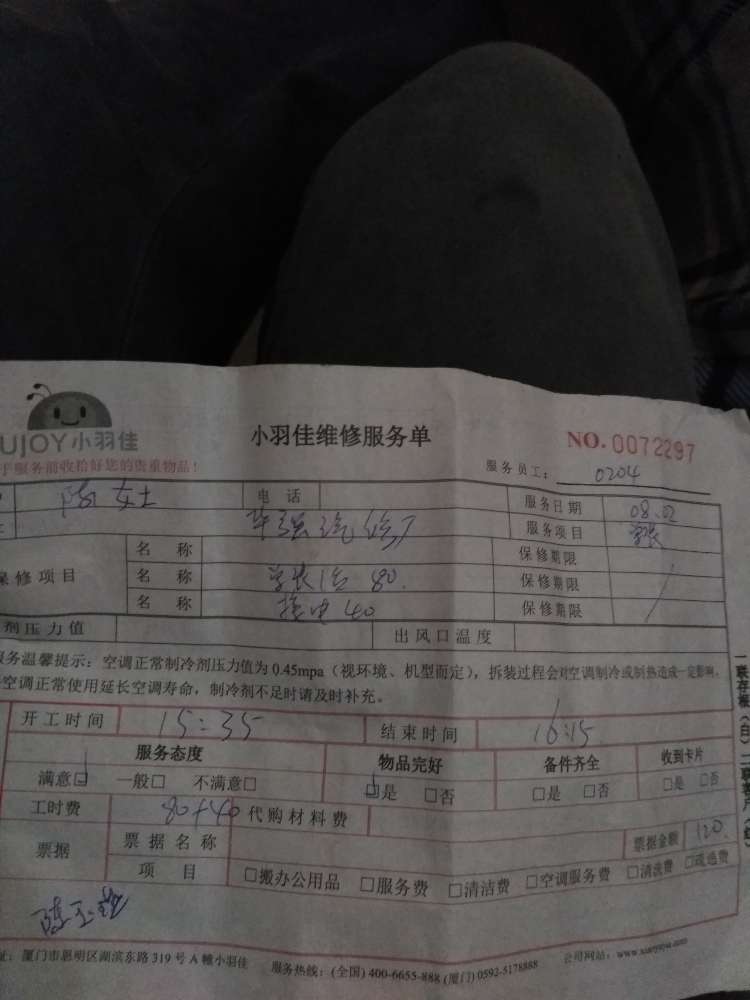 UJOY小羽佳
小羽佳维修服务单
NO. 0072297
于服务前收拾好您的贵重物品!
服务员工: 0204
陈女士 电话 服务日期 08.02
服务项目
名 称 保修期限
保修项目 名 称 80 保修期限
名 称 接电 40 保修期限
剂压力值 出风口温度
服务温馨提示：空调正常制冷剂压力值为 0.45mpa（视环境、机型而定），拆装过程会对空调制冷或制热造成一定影响，
空调正常使用延长空调寿命，制冷剂不足时请及时补充。
开工时间 15:35 结束时间 16:15
服务态度 物品完好 备件齐全 收到卡片
满意□ 一般□ 不满意□ □是 □否 □是 □否 □是 □否
工时费 80+40 代购材料费
票据 票据名称 票据金额 120
项 目 □搬办公用品 □服务费 □清洁费 □空调服务费 □清洗费 □疏通费
址：厦门市思明区湖滨东路 319 号 A 幢小羽佳 服务热线：(全国) 400-6655-888 (厦门) 0592-5178888 公司网站：
一联存根（白）二联客户（红）